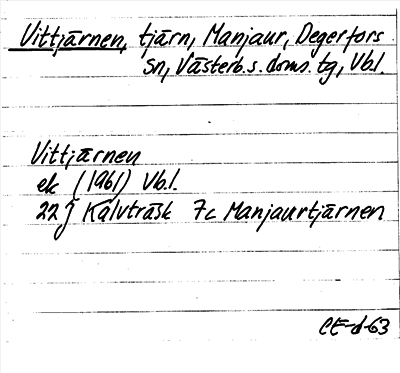 Vittjärnen, tjärn, Manjaur, Degerfors
sn, Västerb.s. doms. tg, Vb.l.
Vittjärnen
ek (1961) Vb.l.
22 J Kalvträsk 7c Manjaurtjärnen
CE-d-63